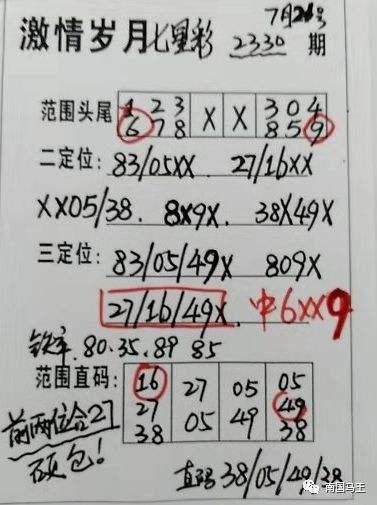 7月24号
激情岁月七星彩 2330 期
范围头尾 1 2 3 X X 3 0 4
6 7 8 8 5 9
二定位: 83/05XX 27/16XX
XX05/38. 8X9X. 38X49X
三定位: 83/05/49X 809X
27/16/49X. 中6XX9
铁率.80.35.89 85
范围直码: 16 27 05 05
27 05 49 49
38 38
前两位合27
硬包!
直码38/05/49/38
南国马王